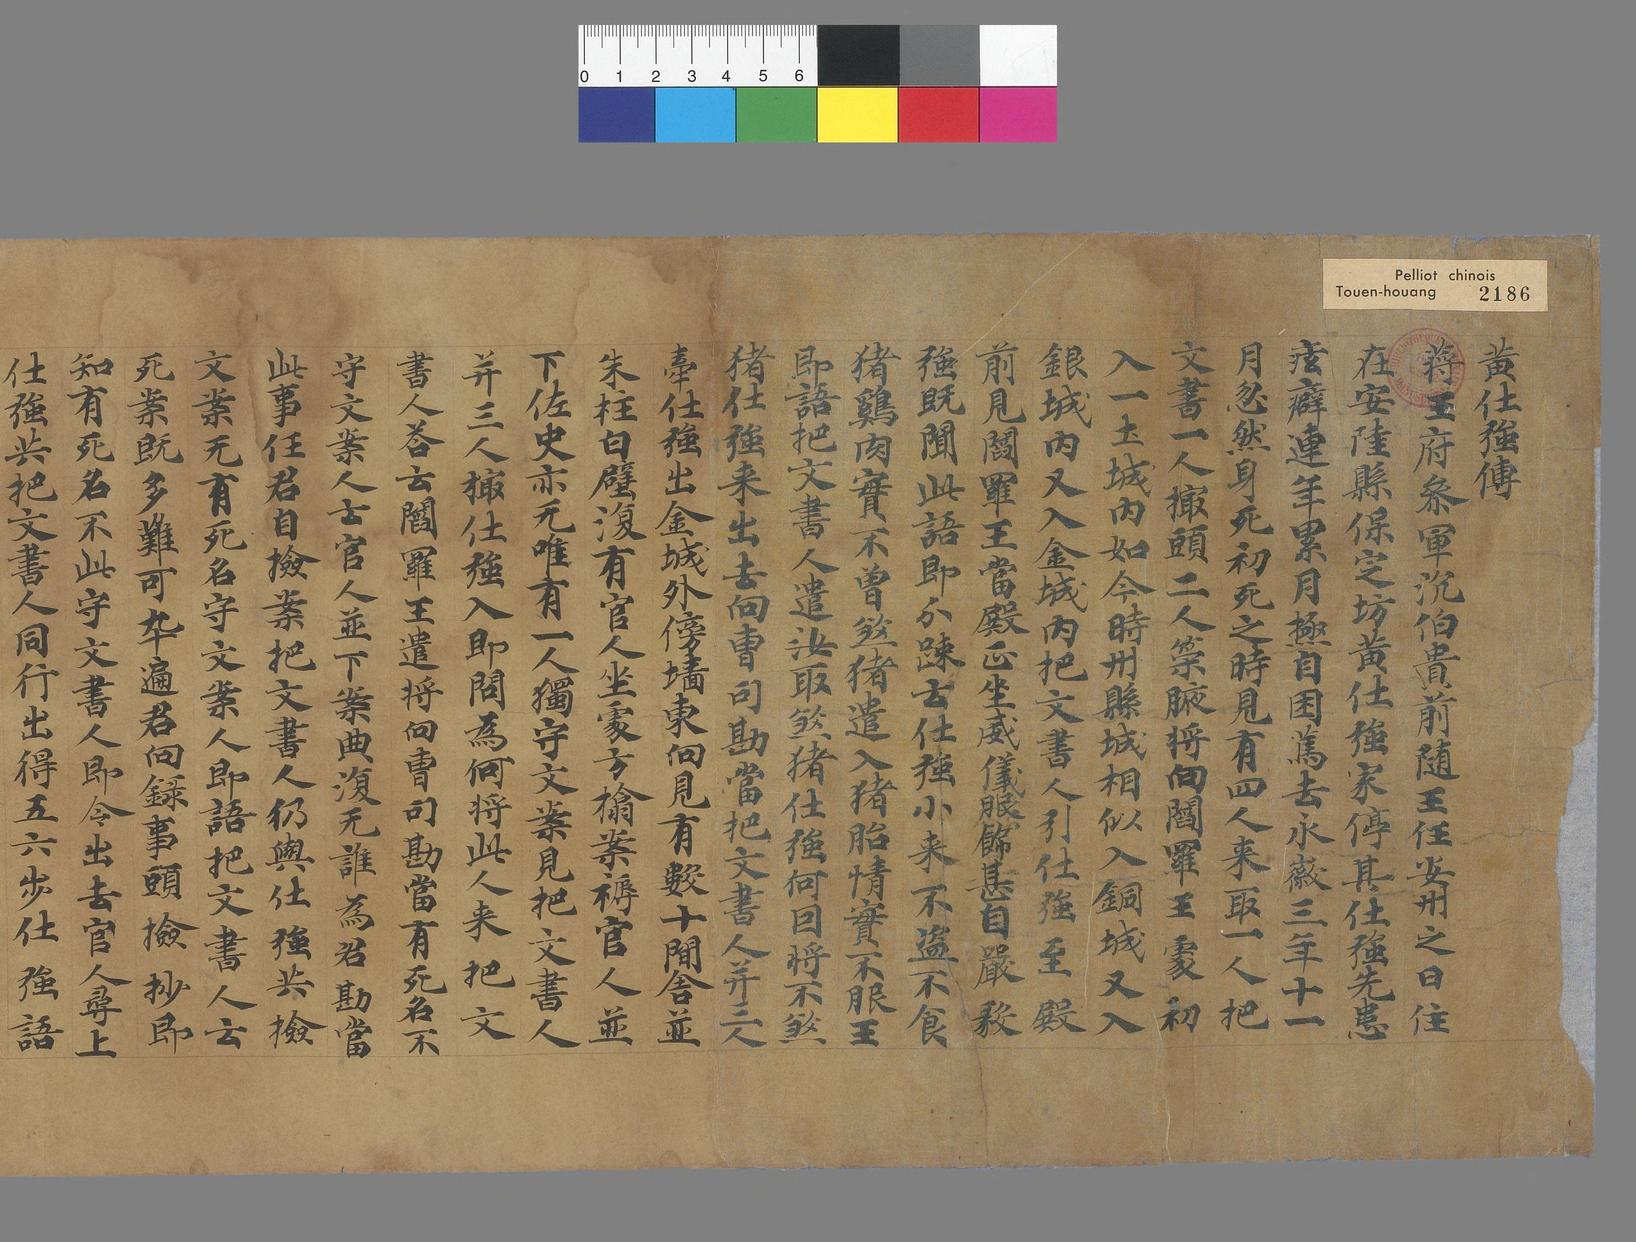 Pelliot chinois
Touen-houang 2186
0 1 2 3 4 5 6
黄仕強傳
蔣王府參軍沉伯貴前随王任安州之日住
在安陸縣保定坊黄仕強家停其仕強先患
痃癖連年累月極自困篤去永徽三年十一
月忽然身死初死之時見有四人来取一人把
文書一人撮頭二人策腋将向閻羅王處初
入一土城内如今時州縣城相似入銅城又入
銀城内又入金城内把文書人引仕強至殿
前見閻羅王當殿正坐威儀服飾甚自嚴毅
強既聞此語即分踈云仕強小来不盗不食
猪鷄肉實不曾煞猪遣入猪胎情實不服王
即語把文書人遣汝取煞猪仕強何因将不煞
猪仕強来出去向曹司勘當把文書人并三人
牽仕強出金城外傍墻東向見有數十間舎並
朱柱白壁復有官人坐處方榻案褥官人並
下佐史亦无唯有一人獨守文案見把文書人
并三人撮仕強入即問為何将此人来把文
書人答云閻羅王遣将向曹司勘當有死名不
守文案人云官人並下案典復无誰為君勘當
此事任君自撿案把文書人仍與仕強共撿
文案无有死名守文案人即語把文書人云
死案既多難可卒遍君向録事頭撿抄即
知有死名不此守文書人即令出去官人尋上
仕強共把文書人同行出得五六步仕強語